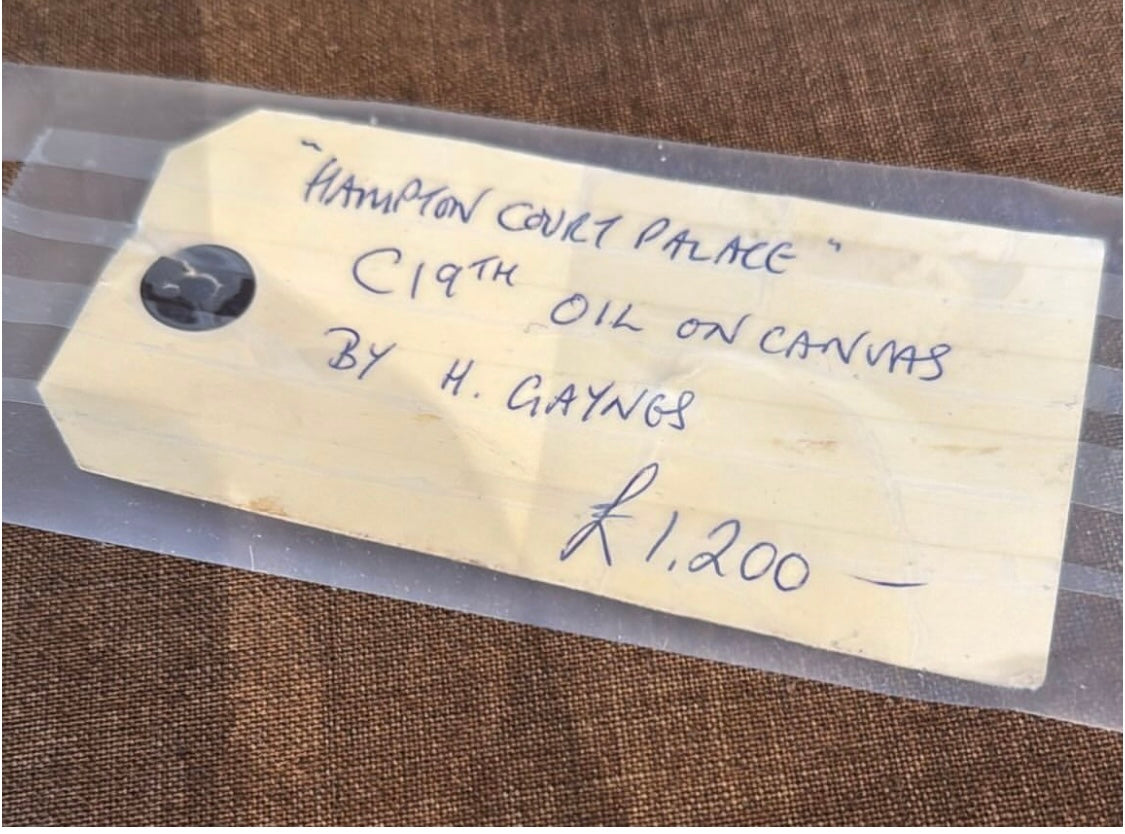 "HAMPTON COURT PALACE"
C19TH OIL ON CANVAS
BY H. GAYNES
£1,200 —